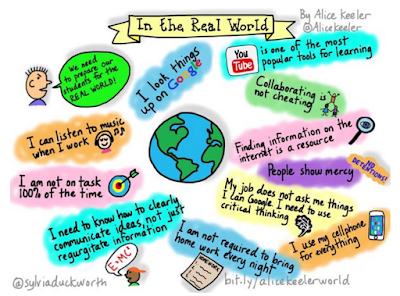 In the Real World
By Alice Keeler
@Alicekeeler
We need
to prepare our
students for the
REAL WORLD!
I look things
up on Google
You
Tube
is one of the most
popular tools for learning
Collaborating is
not cheating
I can listen to music
when I work
Finding information on the
internet is a resource
People show mercy
NO
DETENTIONS!
I am not on task
100% of the time
My job does not ask me things
I can Google. I need to use
critical thinking
I need to know how to clearly
communicate ideas, not just
regurgitate information
E=MC²
I am not required to bring
home work every night
I use my cellphone
for everything
@sylviaduckworth
bit.ly/alicekeelerworld